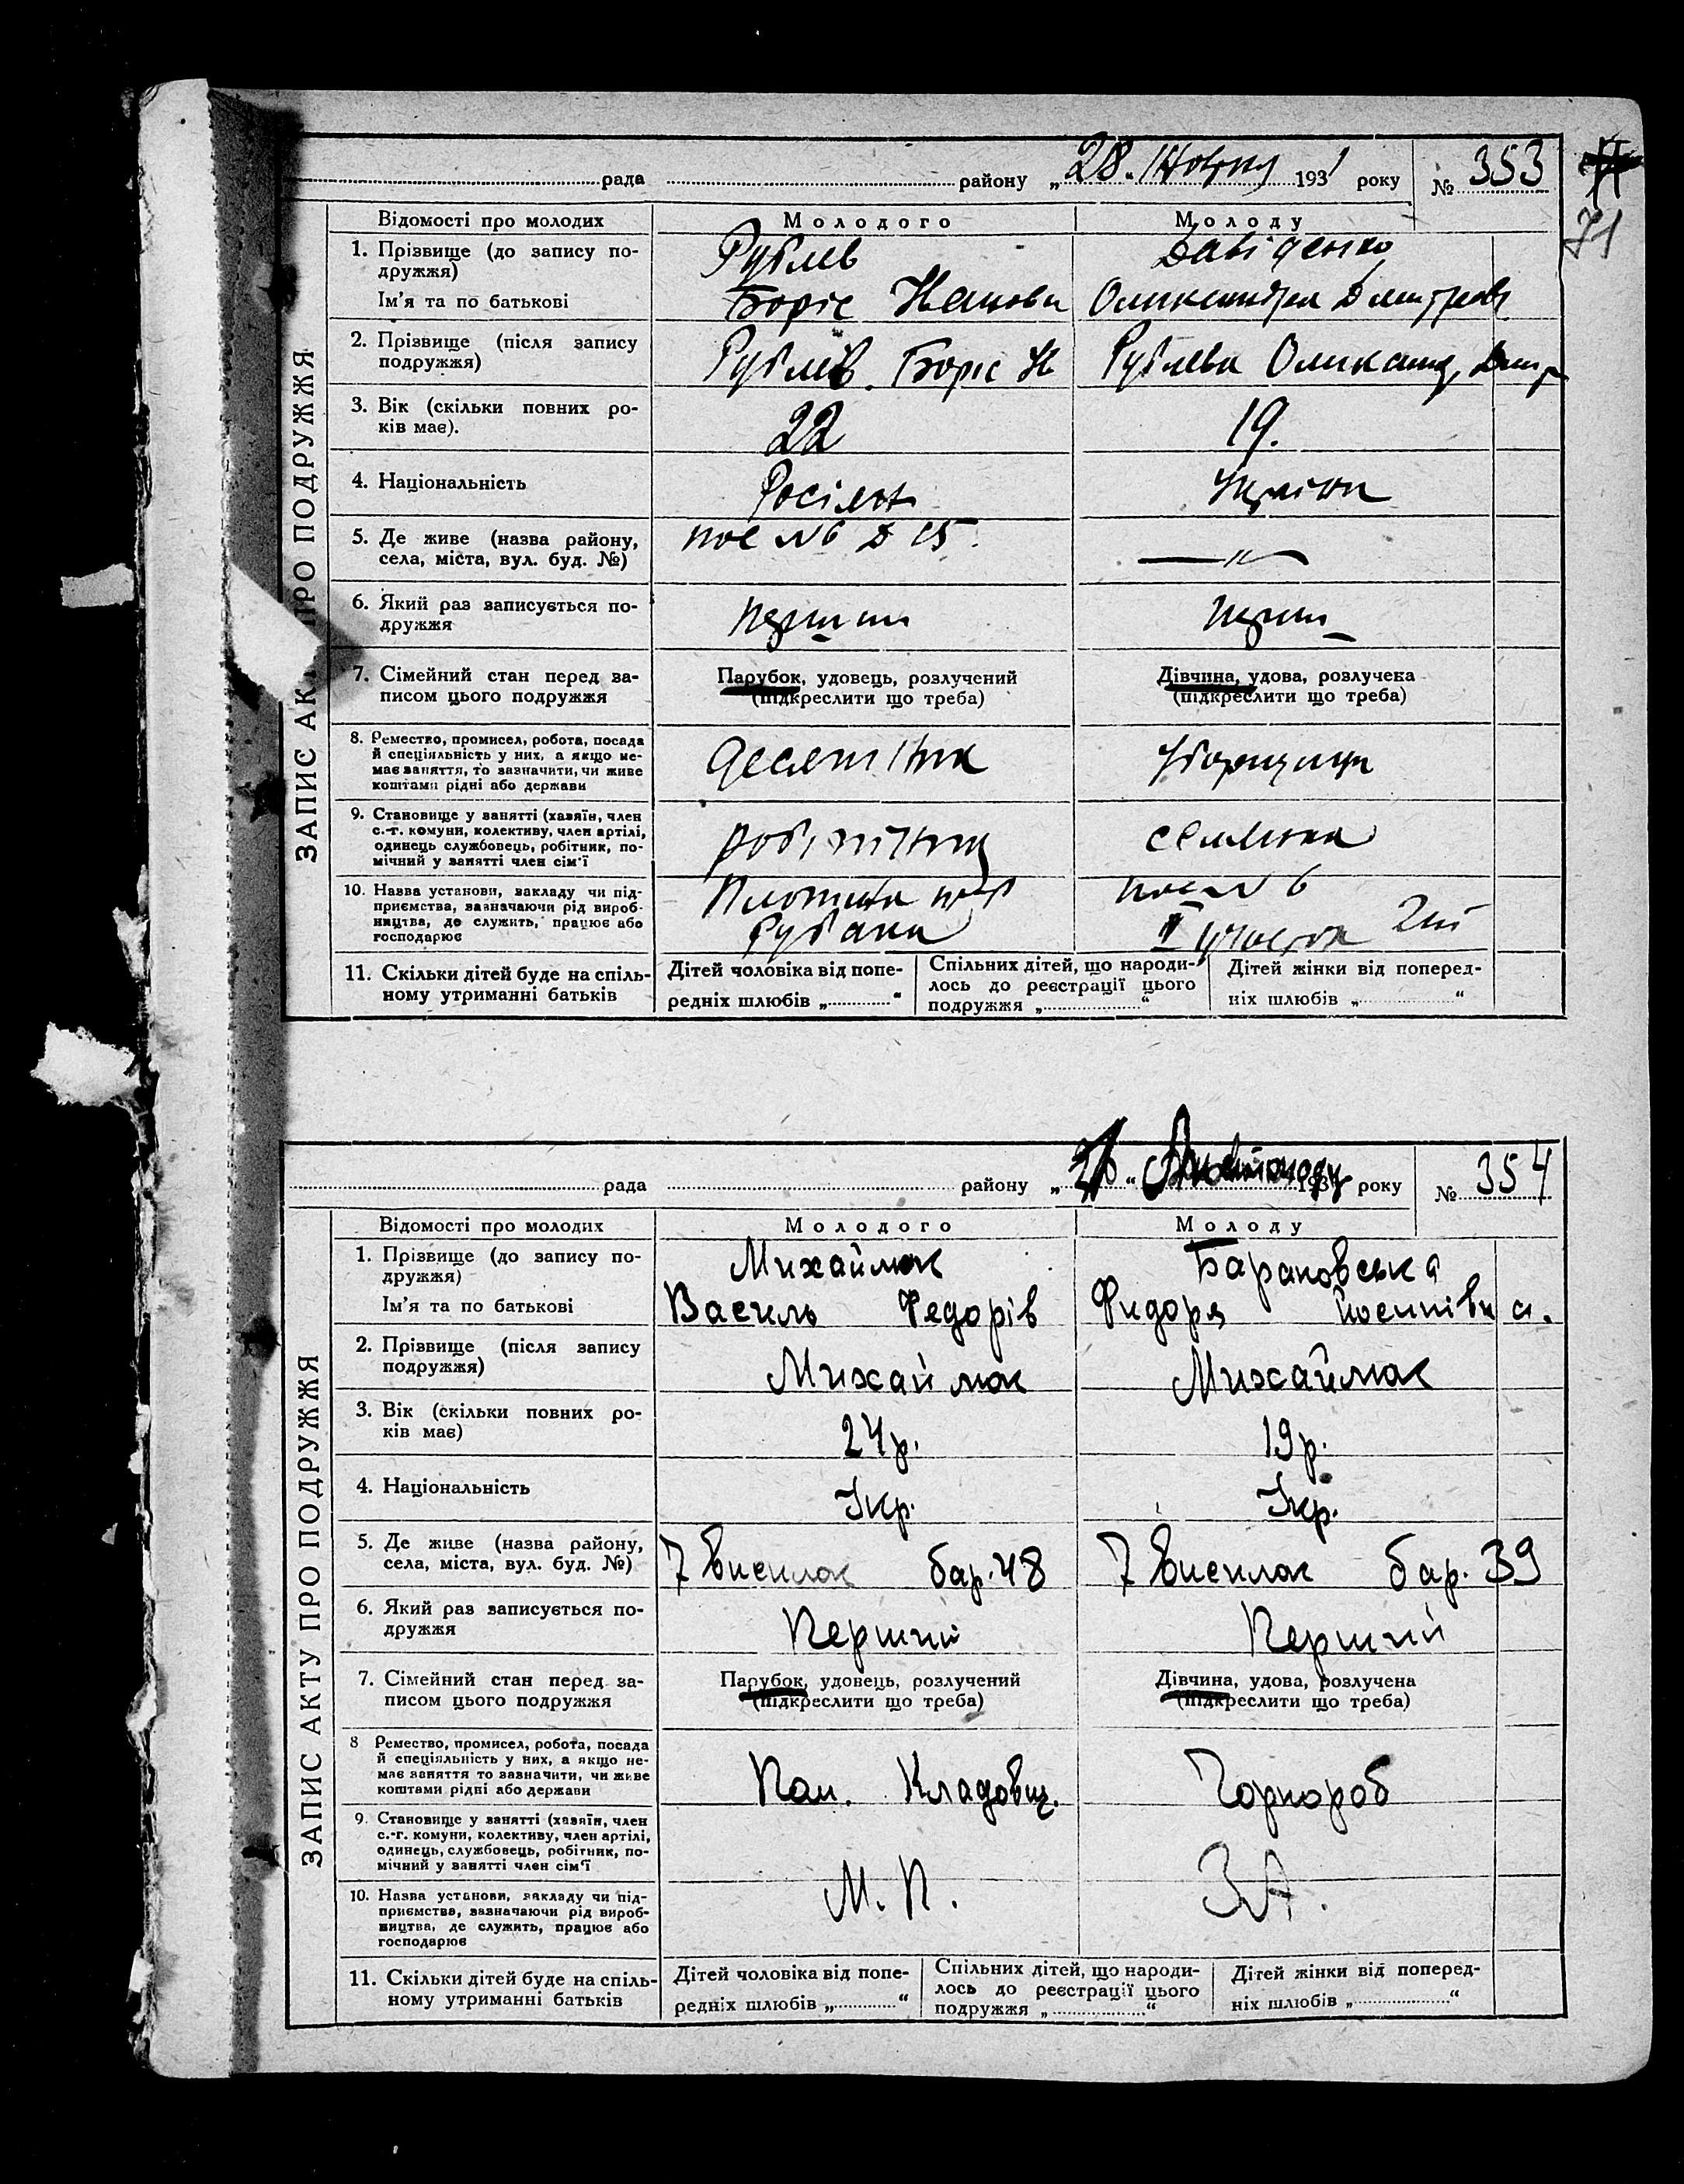 рада района „28. 1931 року № 353
71
ЗАПИС АКТ ПРО ПОДРУЖЖЯ
Відомості про молодих Молодого Молоду
1. Прізвище (до запису по-
дружжя)
Рублев Давіденко
Ім'я та по батькові
Боріс
2. Прізвище (після запису
подружжя)
Рублев. Боріс Рублева
3. Вік (скільки повних ро-
ків має).
22 19.
4. Національність
5. Де живе (назва району,
села, міста, вул. буд. №)
пос №6 Д 15. —〃—
6. Який раз записується по-
дружжя
7. Сімейний стан перед за-
писом цього подружжя
Парубок, удовець, розлучений
(підкреслити що треба)
Дівчина, удова, розлучена
(підкреслити що треба)
8. Ремество, промисел, робота, посада
й спеціяльність у них, а якщо не-
має заняття, то зазначити, чи живе
коштами рідні або держави
десятнік
9. Становище у занятті (хазяїн, член
с.-г. комуни, колективу, член артілі,
одинець службовець, робітник, по-
мічний у занятті член сім'ї
10. Назва установи, закладу чи під-
приємства, зазначаючи рід вироб-
ництва, де служить, працює або
господарює
пос №6
11. Скільки дітей буде на спіль-
ному утриманні батьків
Дітей чоловіка від попе-
редніх шлюбів „ “
Спільних дітей, що народи-
лось до реєстрації цього
подружжя „ “
Дітей жінки від поперед-
ніх шлюбів „ “
рада району „ “ 193 року № 354
ЗАПИС АКТУ ПРО ПОДРУЖЖЯ
Відомості про молодих Молодого Молоду
1. Прізвище (до запису по-
дружжя)
Михайлюк Барановська
Ім'я та по батькові
Василь Федорів Фидора Йосипівна.
2. Прізвище (після запису
подружжя)
Михайлюк Михайлюк
3. Вік (скільки повних ро-
ків має)
24р. 19р.
4. Національність
Укр. Укр.
5. Де живе (назва району,
села, міста, вул. буд. №)
7 висилок бар. 48 7 висилок бар. 39
6. Який раз записується по-
дружжя
Перший Перший
7. Сімейний стан перед за-
писом цього подружжя
Парубок, удовець, розлучений
(підкреслити що треба)
Дівчина, удова, розлучена
(підкреслити що треба)
8 Ремество, промисел, робота, посада
й спеціяльність у них, а якщо не-
має заняття то зазначити, чи живе
коштами рідні або держави
Пом. Кладовщ. Чорнороб
9. Становище у занятті (хазяїн, член
с.-г. комуни, колективу, член артілі,
одинець, службовець, робітник, по-
мічний у занятті член сім'ї
10. Назва установи, закладу чи під-
приємства, зазначаючи рід вироб-
ництва, де служить, працює або
господарює
М. П. З.А.
11. Скільки дітей буде на спіль-
ному утриманні батьків
Дітей чоловіка від попе-
редніх шлюбів „ “
Спільних дітей, що народи-
лось до реєстрації цього
подружжя „ “
Дітей жінки від поперед-
ніх шлюбів „ “